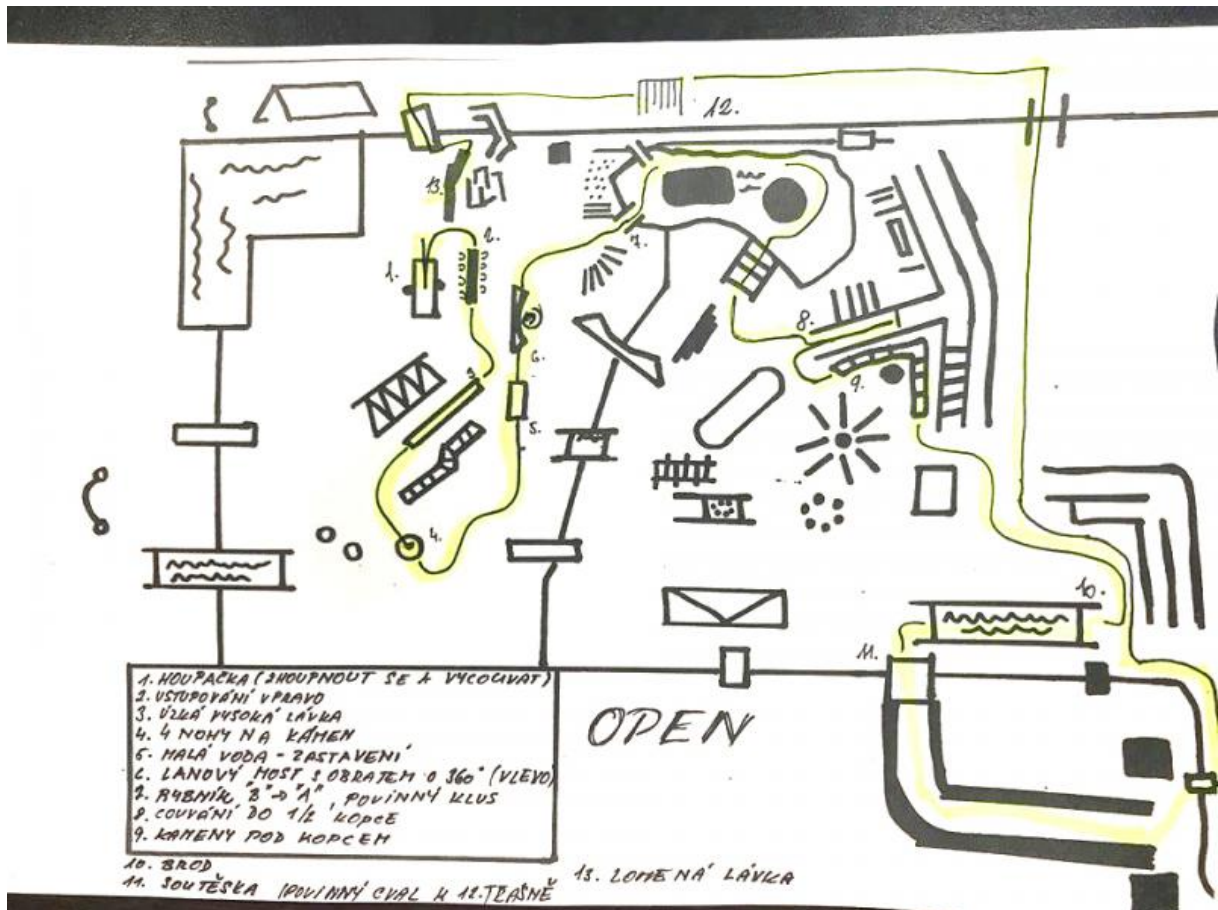 12.
13.
2.
1.
7.
8.
6.
3.
9.
5.
4.
10.
11.
OPEN
1. HOUPAČKA (ZHOUPNOUT SE A VYCOUVAT)
2. USTUPOVÁNÍ VPRAVO
3. ÚZKÁ VYSOKÁ LÁVKA
4. 4 NOHY NA KÁMEN
5. MALÁ VODA - ZASTAVENÍ
6. LANOVÝ MOST S OBRATEM O 360° (VLEVO)
7. RYBNÍK "B"→"A", POVINNÝ KLUS
8. COUVÁNÍ DO 1/2 KOPCE
9. KAMENY POD KOPCEM
10. BROD
11. SOUTĚSKA (POVINNÝ CVAL K 12. TŘÁSNĚ
13. LOMENÁ LÁVKA